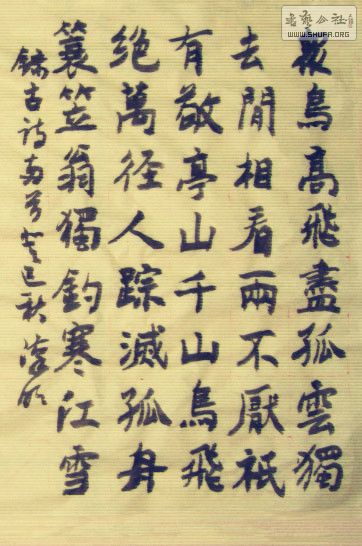 書藝公社
WWW.SHUFA.ORG
衆鳥高飛盡孤雲獨
去閒相看兩不厭祇
有敬亭山千山鳥飛
絕萬徑人踪滅孤舟
蓑笠翁獨釣寒江雪
錄古詩兩首癸巳秋